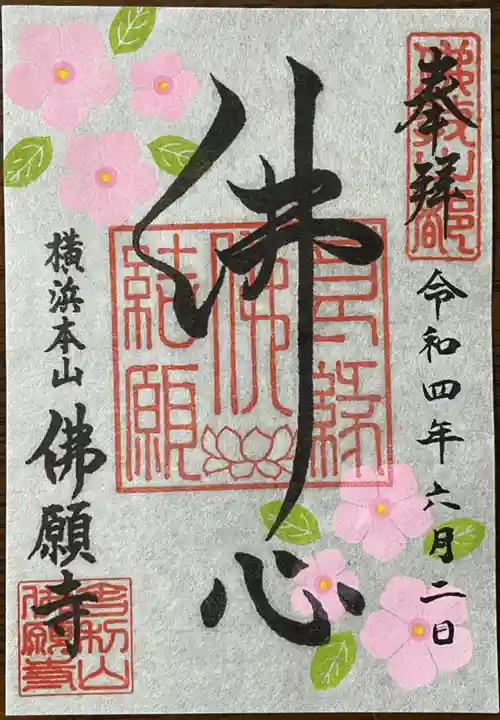 奉拝
令和四年六月二日
佛心
横浜本山
佛願寺